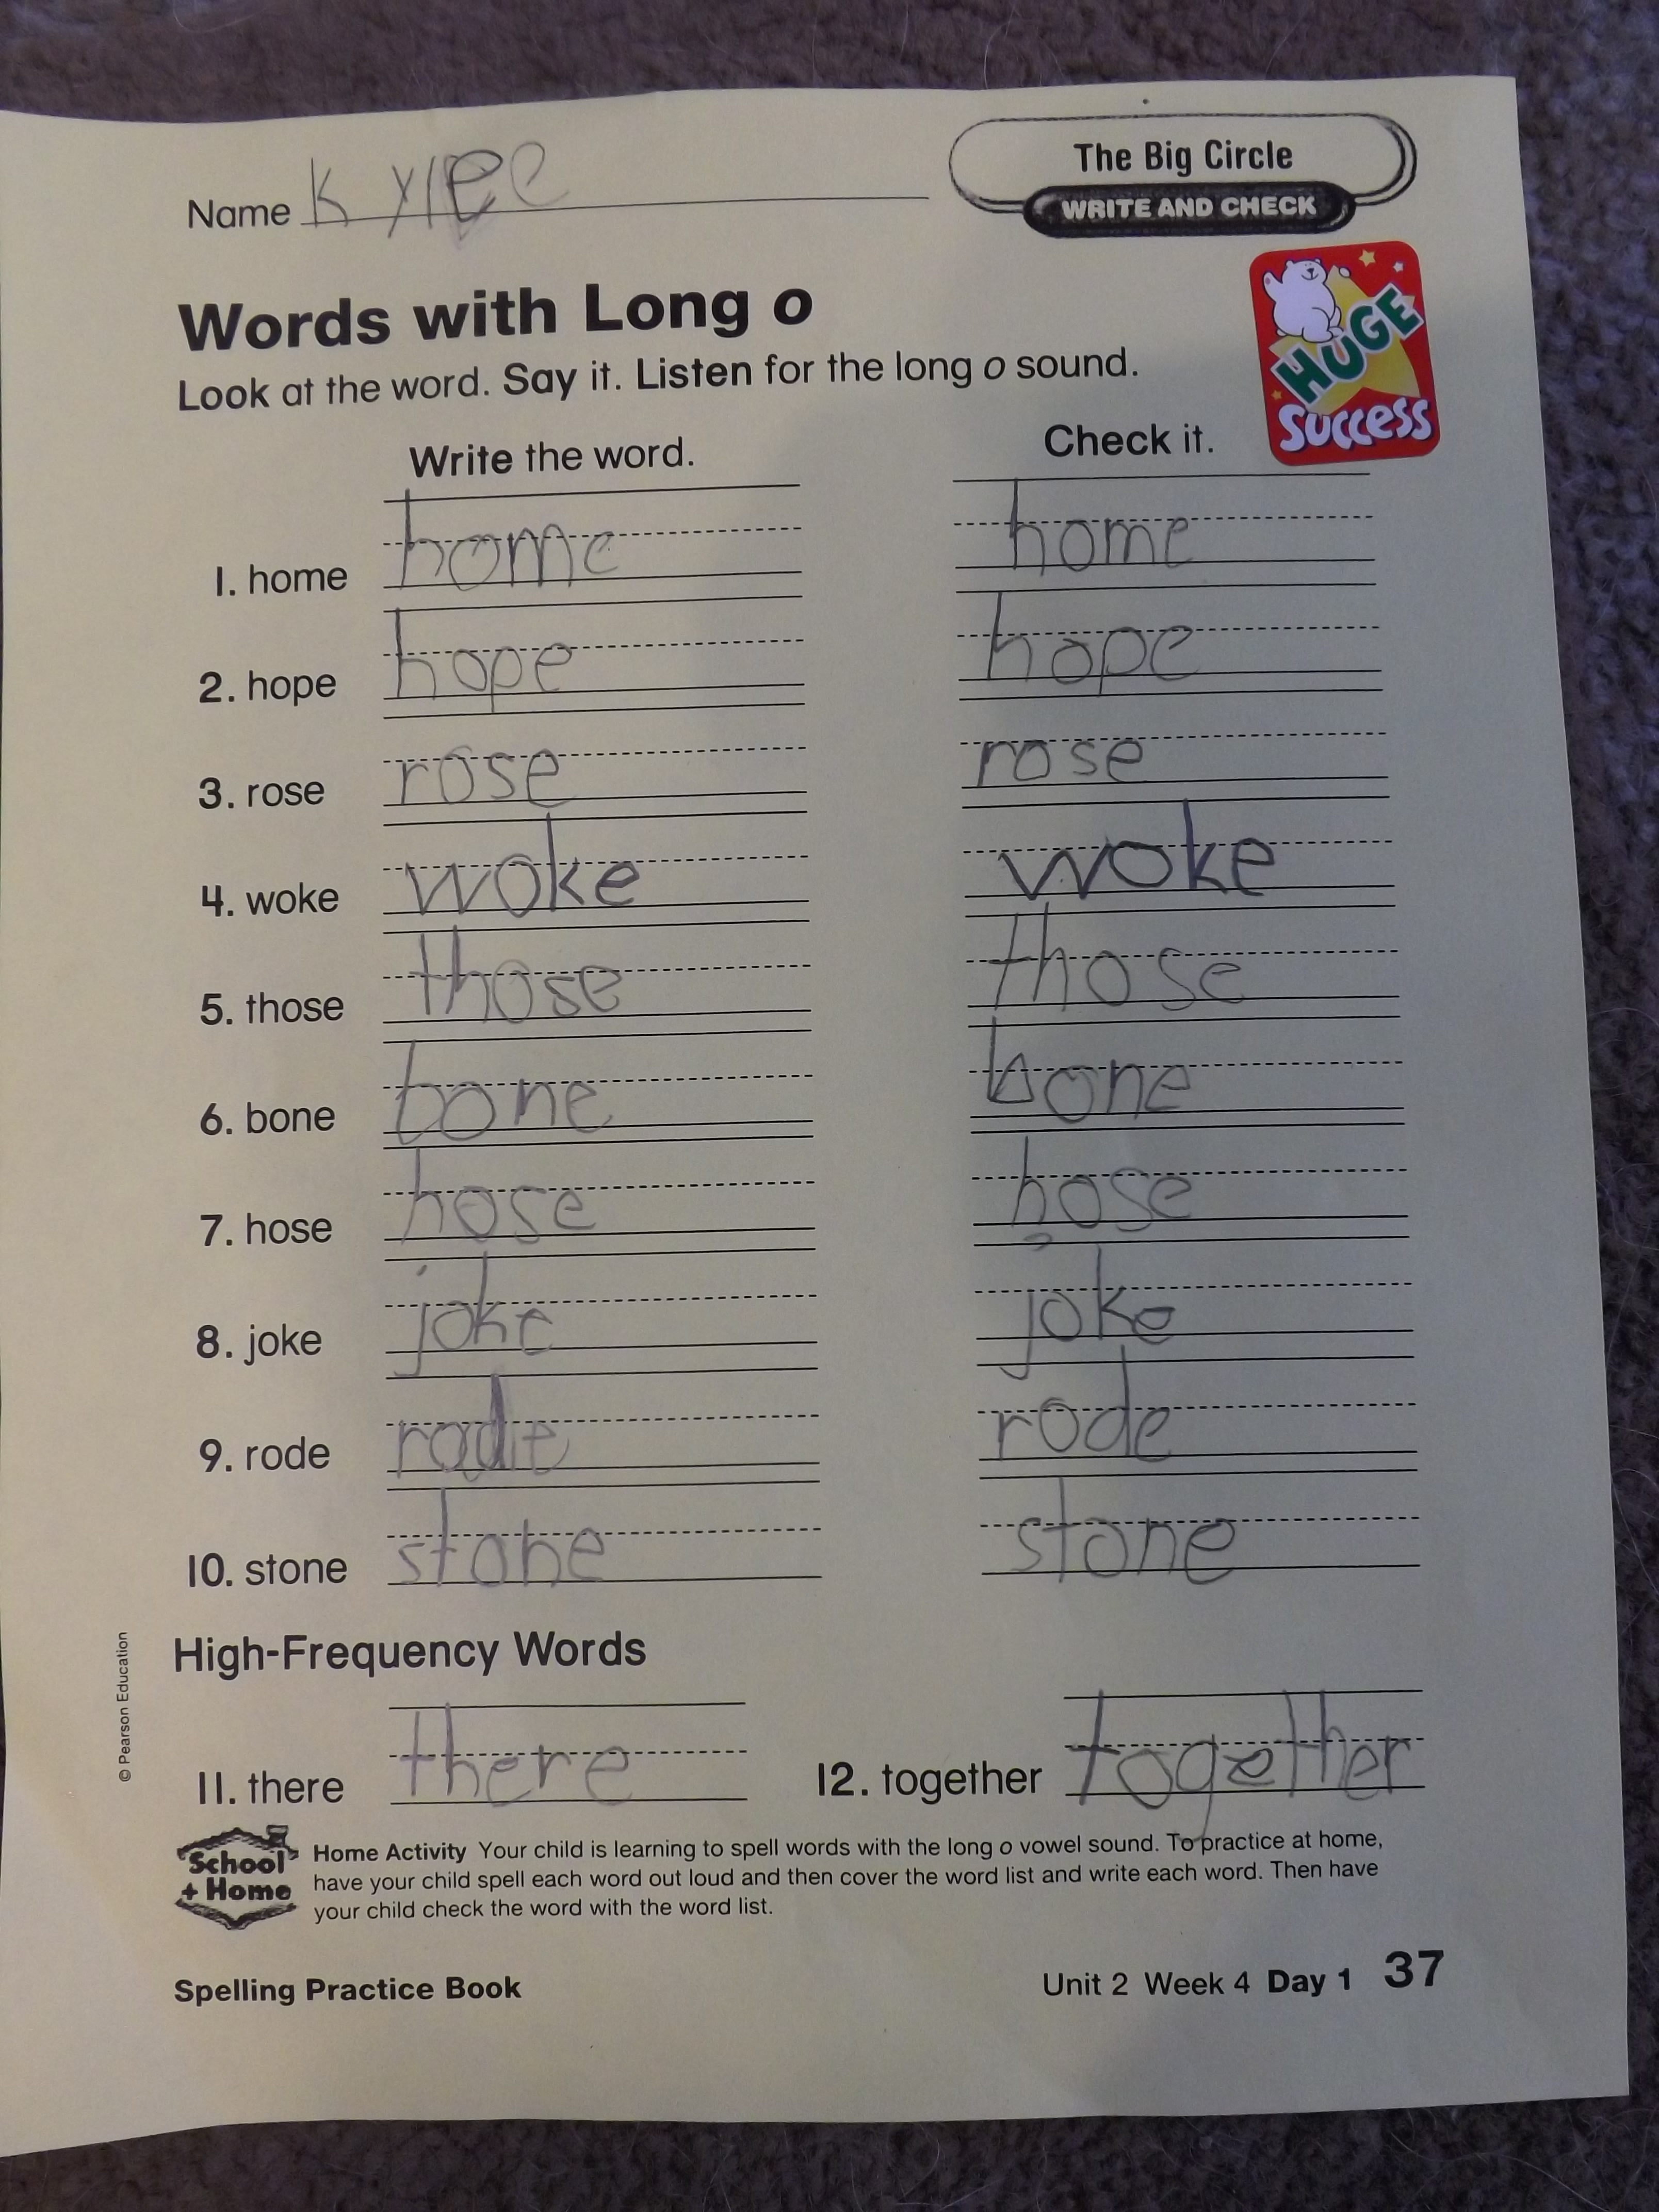 Name Kylee
The Big Circle
WRITE AND CHECK
HUGE
SUCCESS
Words with Long o
Look at the word. Say it. Listen for the long o sound.
Write the word. Check it.
1. home home home
2. hope hope hope
3. rose rose rose
4. woke woke woke
5. those those those
6. bone bone bone
7. hose hose hose
8. joke joke joke
9. rode rode rode
10. stone stone stone
High-Frequency Words
11. there there 12. together together
School
+ Home
Home Activity Your child is learning to spell words with the long o vowel sound. To practice at home,
have your child spell each word out loud and then cover the word list and write each word. Then have
your child check the word with the word list.
© Pearson Education
Spelling Practice Book Unit 2 Week 4 Day 1 37